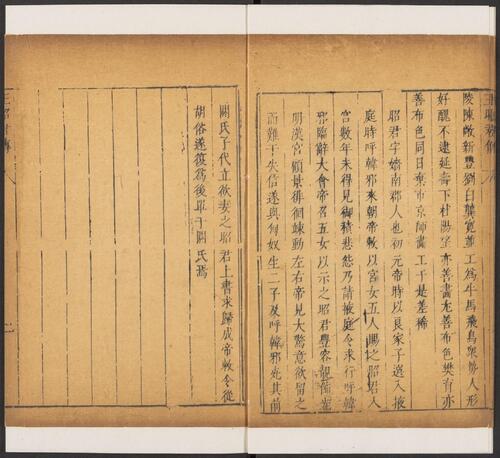 陵陳敞新豐劉白龔寬並工為牛馬飛鳥衆勢人形
好醜不逮延壽下杜陽望亦善畫尤善布色樊育亦
善布色同日棄市京師畫工于是差稀
昭君字嬙南郡人也初元帝時以良家子選入掖
庭時呼韓邪來朝帝敕以宮女五人賜之昭君入
宮數年未得見御積悲怨乃請掖庭令求行呼韓
邪臨辭大會帝召五女以示之昭君豐容靚飾光
明漢宮顧景徘徊竦動左右帝見大驚意欲留之
而難于失信遂與匈奴生二子及呼韓邪死其前
閼氏子代立欲妻之昭君上書求歸成帝敕令從
胡俗遂復為後單于閼氏焉
王昭君傳